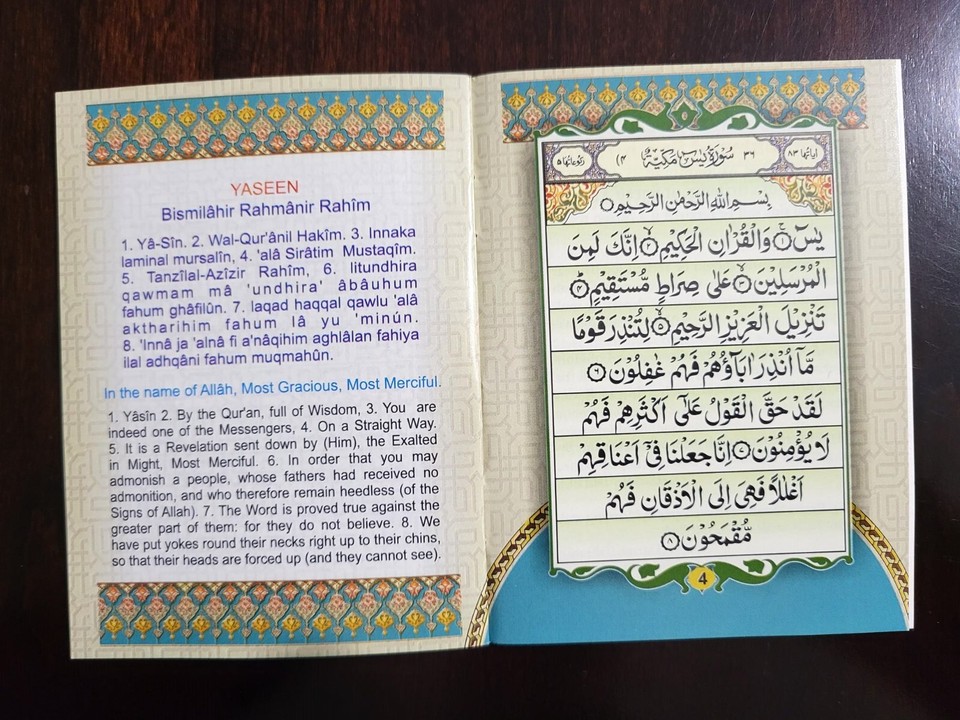 YASEEN
Bismilâhir Rahmânir Rahîm
1. Yâ-Sîn. 2. Wal-Qur'ânil Hakîm. 3. Innaka
laminal mursalîn, 4. 'alâ Sirâtim Mustaqîm.
5. Tanzîlal-Azîzir Rahîm, 6. litundhira
qawmam mâ 'undhira' âbâuhum
fahum ghâfilûn. 7. laqad haqqal qawlu 'alâ
aktharihim fahum lâ yu 'minún.
8. 'Innâ ja 'alnâ fi a'nâqihim aghlâlan fahiya
ilal adhqâni fahum muqmahûn.
In the name of Allâh, Most Gracious, Most Merciful.
1. Yâsîn 2. By the Qur'an, full of Wisdom, 3. You are
indeed one of the Messengers, 4. On a Straight Way.
5. It is a Revelation sent down by (Him), the Exalted
in Might, Most Merciful. 6. In order that you may
admonish a people, whose fathers had received no
admonition, and who therefore remain heedless (of the
Signs of Allah). 7. The Word is proved true against the
greater part of them: for they do not believe. 8. We
have put yokes round their necks right up to their chins,
so that their heads are forced up (and they cannot see).
اٰیاتها ٨٣ ٣٦ سُوْرَةُ يٰسٓ مَكِّيَّةٌ (٤١ رکوعاتها ٥
بِسْمِ اللهِ الرَّحْمٰنِ الرَّحِيْمِ
يٰسٓ ۝١ وَالْقُرْاٰنِ الْحَكِيْمِ ۝٢ اِنَّكَ لَمِنَ
الْمُرْسَلِيْنَ ۝٣ عَلٰى صِرَاطٍ مُّسْتَقِيْمٍ ۝٤
تَنْزِيْلَ الْعَزِيْزِ الرَّحِيْمِ ۝٥ لِتُنْذِرَ قَوْمًا
مَّاۤ اُنْذِرَ اٰبَآؤُهُمْ فَهُمْ غٰفِلُوْنَ ۝٦
لَقَدْ حَقَّ الْقَوْلُ عَلٰٓى اَكْثَرِهِمْ فَهُمْ
لَا يُؤْمِنُوْنَ ۝٧ اِنَّا جَعَلْنَا فِيْٓ اَعْنَاقِهِمْ
اَغْلٰلًا فَهِيَ اِلَى الْاَذْقَانِ فَهُمْ
مُّقْمَحُوْنَ ۝٨
4